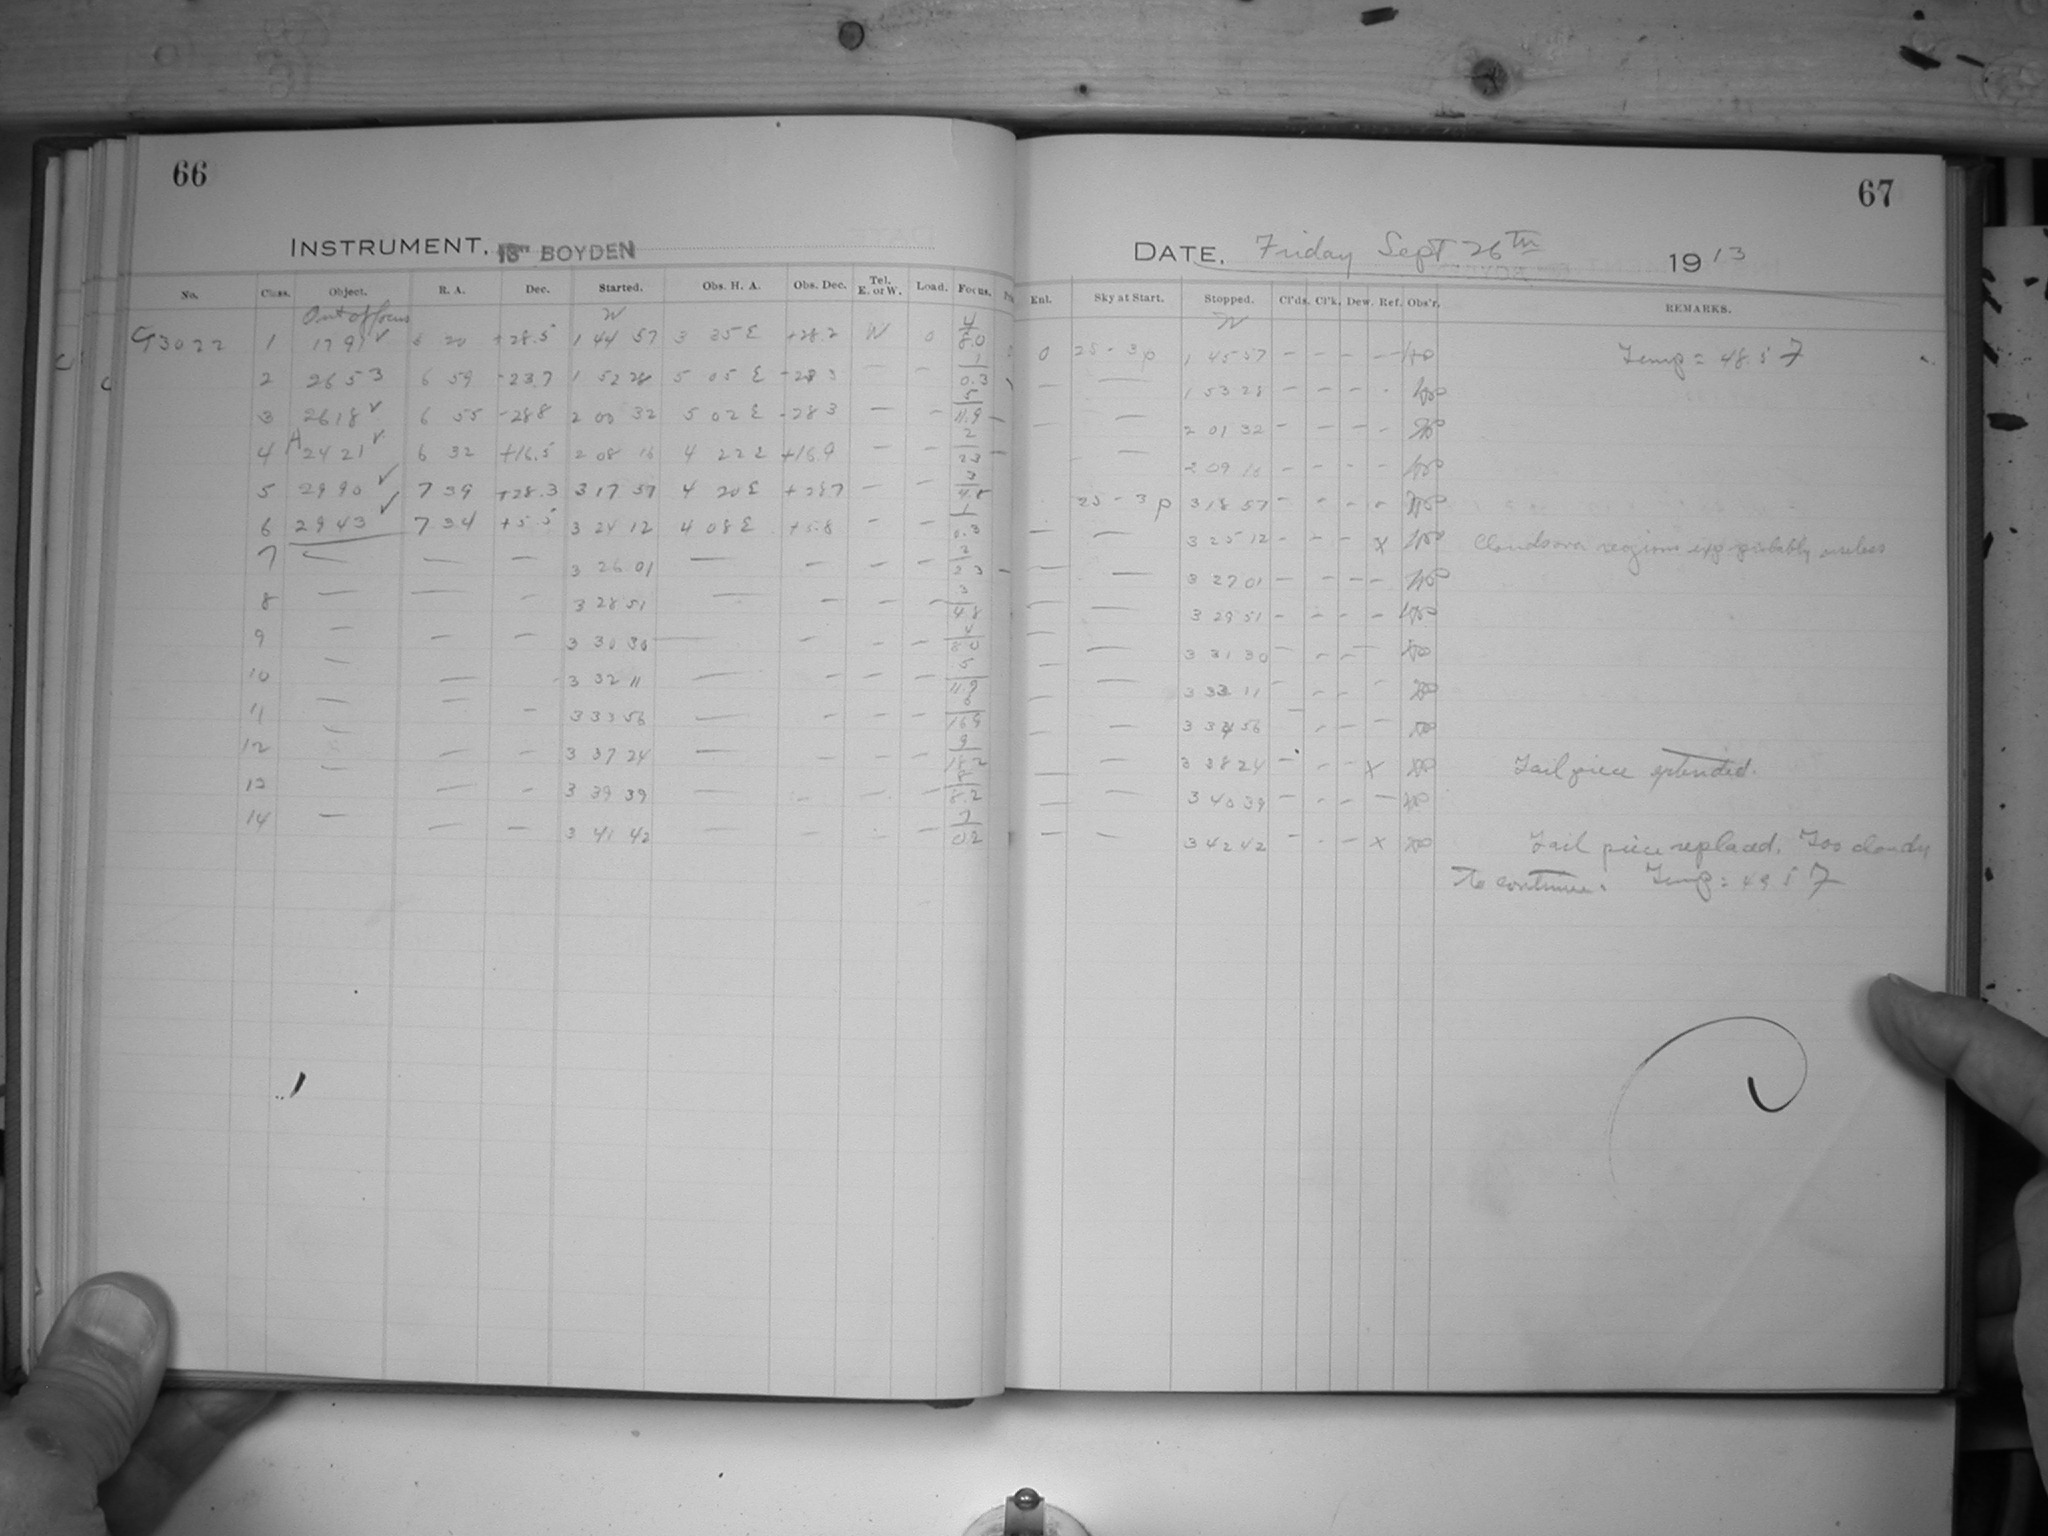 66
INSTRUMENT. 13 BOYDEN
No. Class. Object. R. A. Dec. Started. Obs. H. A. Obs. Dec. Tel. E. or W. Load. Focus.
Out of focus
1 1 44 57 3 35 E +28.2 W 0 4 8.0
2 2653 6 59 -23.7 1 52 28 5 05 E 1 0.3
3 2618 ✓ 6 55 -28.8 2 00 32 5 02 E -28 3 — — 5 11.9 —
4 A 2421 ✓ 6 32 +16.5 2 08 16 4 22 E +16.9 — — 2 2 3 —
5 2990 ✓ 7 39 +28.3 3 17 57 4 20 E +28.7 — — 3
6 2943 ✓ 7 34 +5.5 3 24 12 4 08 E +5.8 — — 1 0.3
7 — — — 3 26 01 — — — — 2 2 3 —
8 — — — 3 28 51 — — — — 3 4 8
9 — — — 3 30 30 — — — — 4 8 0
10 — — — 3 32 11 — — — — 5 11.9
11 — — — 3 33 56 — — — — 6 16 9
12 — — — 3 37 24 — — — — 9
13 — — — 3 39 39 — — — — 8.2
14 — — — 3 41 42 — — — — 7 0 2
67
DATE. Friday Sept 26th 1913
Enl. Sky at Start. Stopped. Cl'ds. Cl'k. Dew. Ref. Obs'r. REMARKS.
0 25 - 3 p 1 45 57 — — — — Temp = 48.5 F
— — 1 53 28 — — — -
— — 2 01 32 — — — -
— — 2 09 16 — — — -
25 - 3 p 3 18 57 — — — -
— — 3 25 12 — — — x Clouds over regions exp probably useless
— — 3 27 01 — — — -
— — 3 29 51 — — — -
— — 3 31 30 — — — -
— — 3 33 11 — — — -
— — 3 34 56 — — — -
— — 3 38 24 — — — x Tail piece extended.
— — 3 40 39 — — — -
— — 3 42 42 — — — x Tail piece replaced. Too cloudy
to continue. Temp = 49 5 F